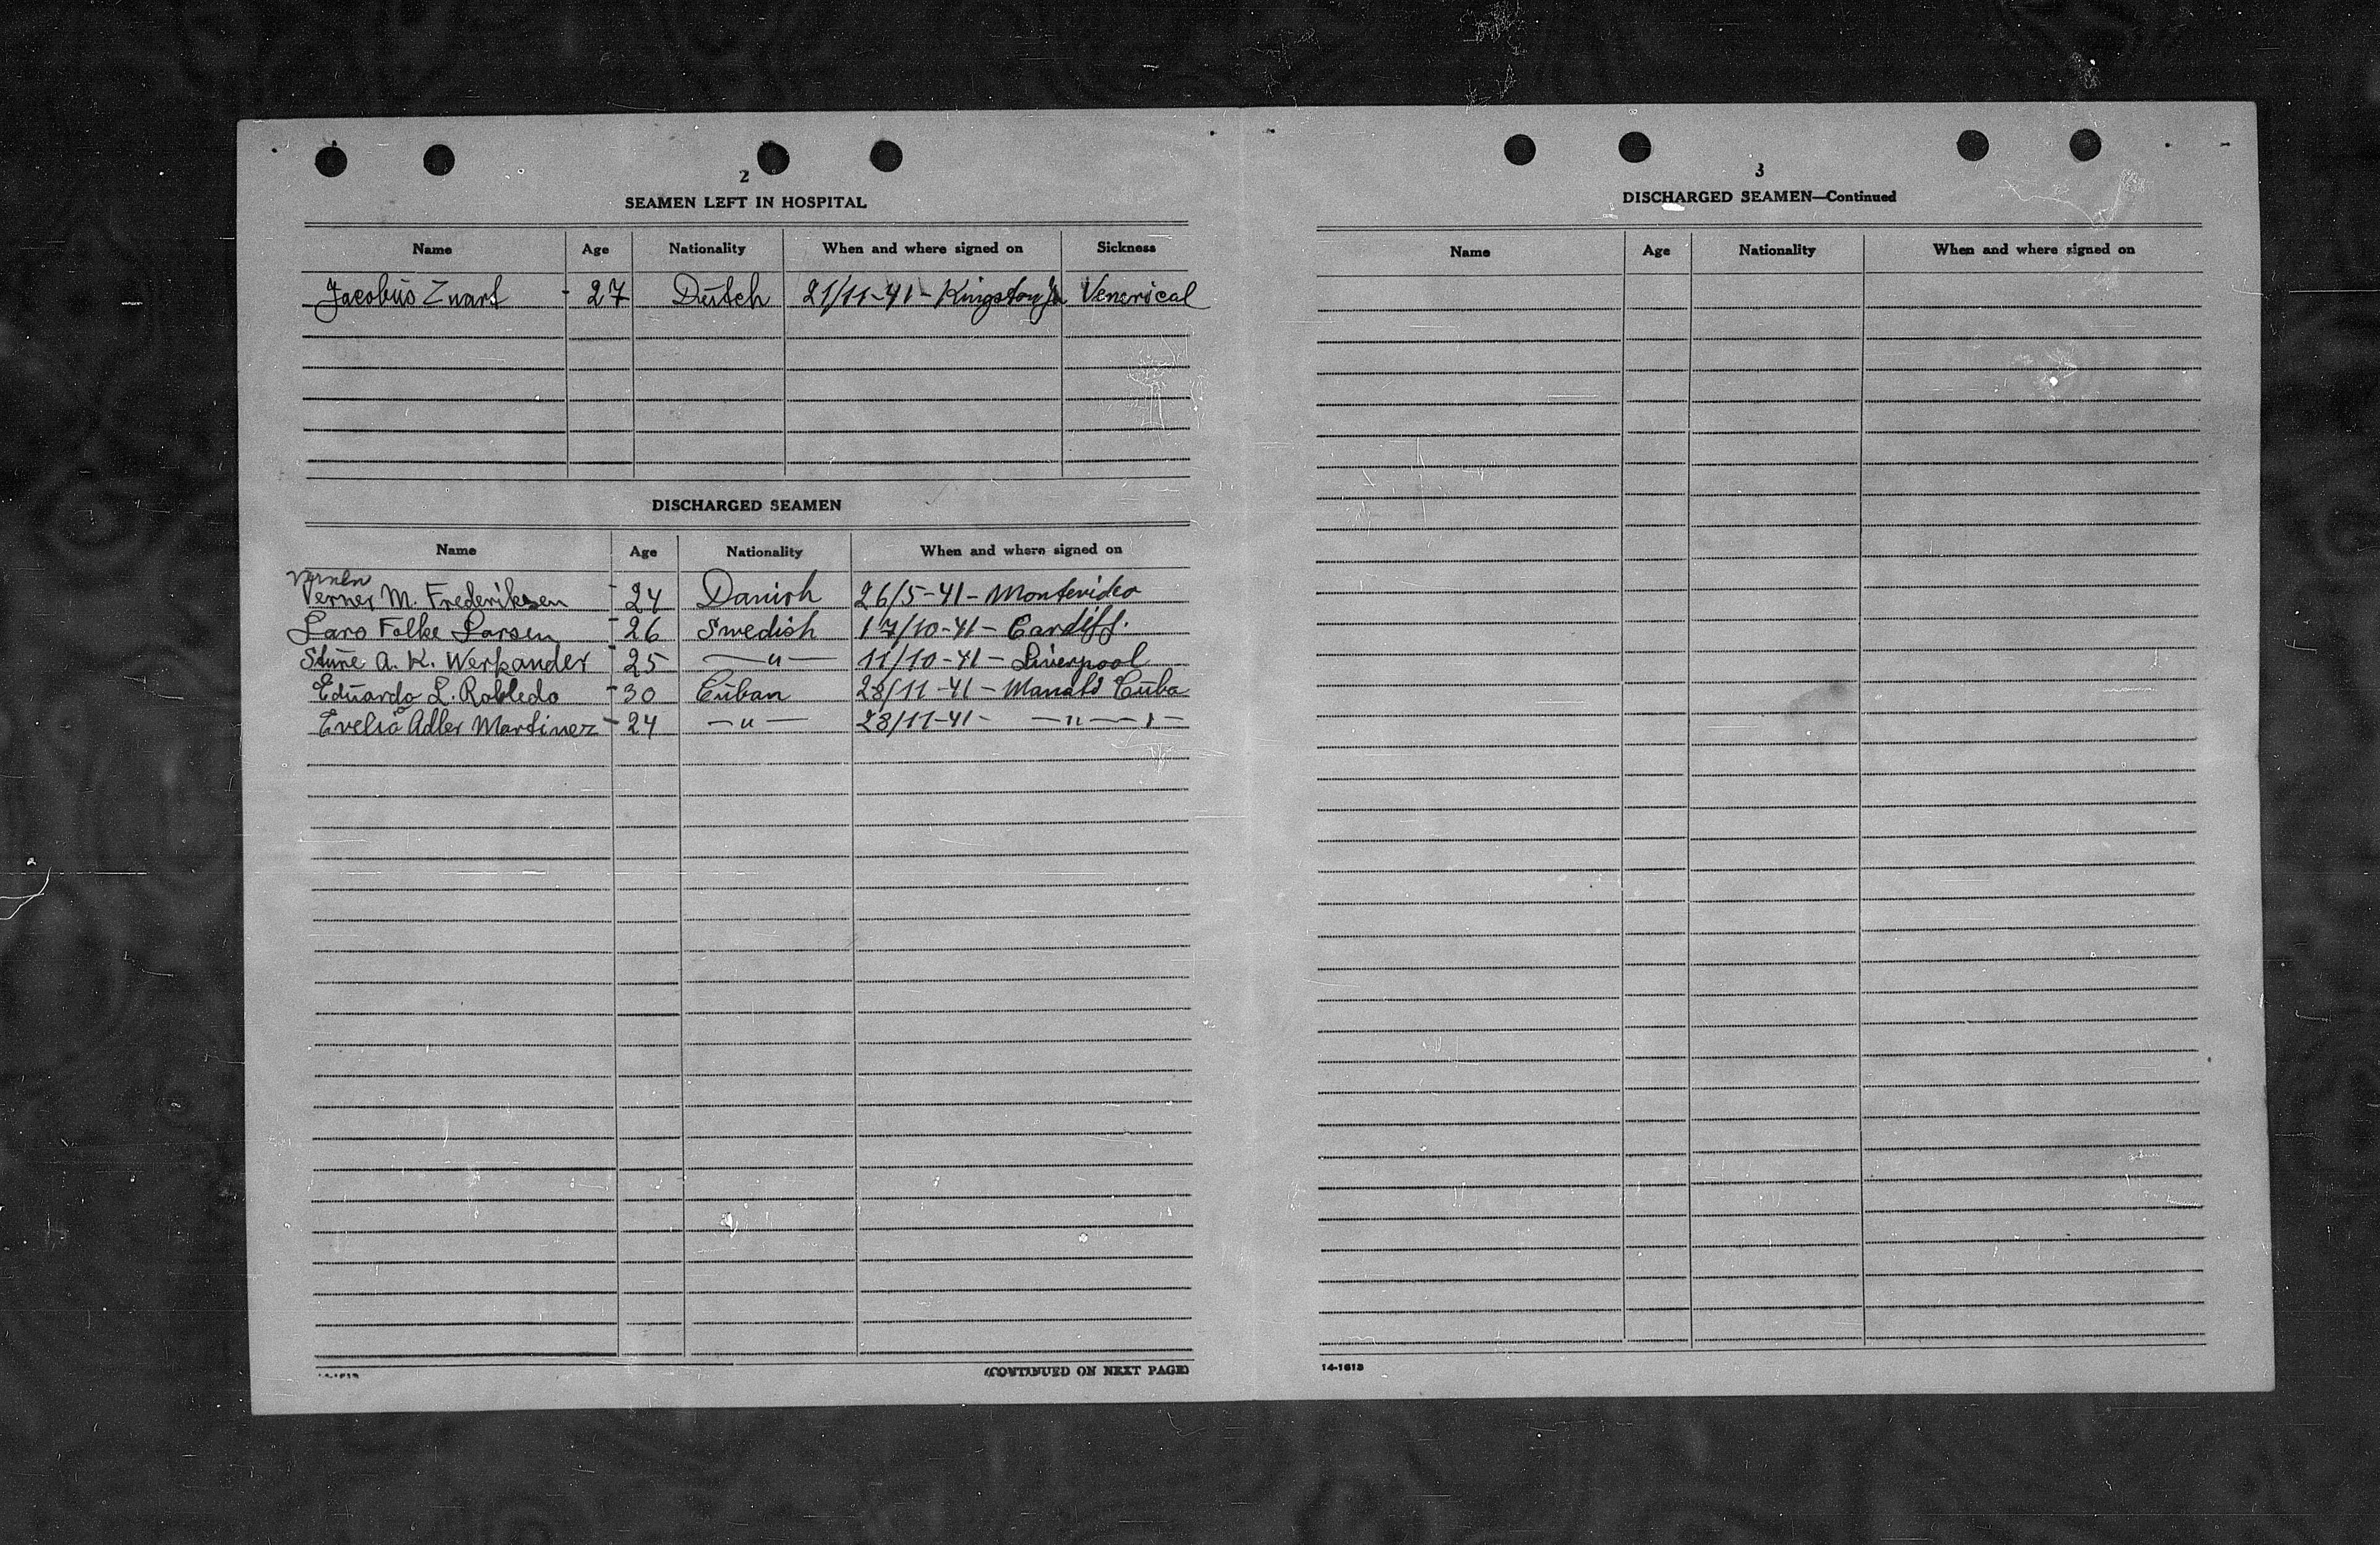 2
SEAMEN LEFT IN HOSPITAL
Name Age Nationality When and where signed on Sickness
Jacobus Zwart - 27 Dutch 21/11-41 - Kingston Ja Venerical
DISCHARGED SEAMEN
Name Age Nationality When and where signed on
Verner M. Frederiksen - 24 Danish 26/5-41 - Montevideo
Lars Folke Larsen - 26 Swedish 17/10-41 - Cardiff.
Sture A. K. Werkander - 25 —"— 11/10-41 - Liverpool
Eduardo L. Robledo - 30 Cuban 28/11-41 - Manati Cuba
Evelio Adler Martinez - 24 —"— 28/11-41 - —"—
(CONTINUED ON NEXT PAGE)
3
DISCHARGED SEAMEN—Continued
Name Age Nationality When and where signed on
14-1613